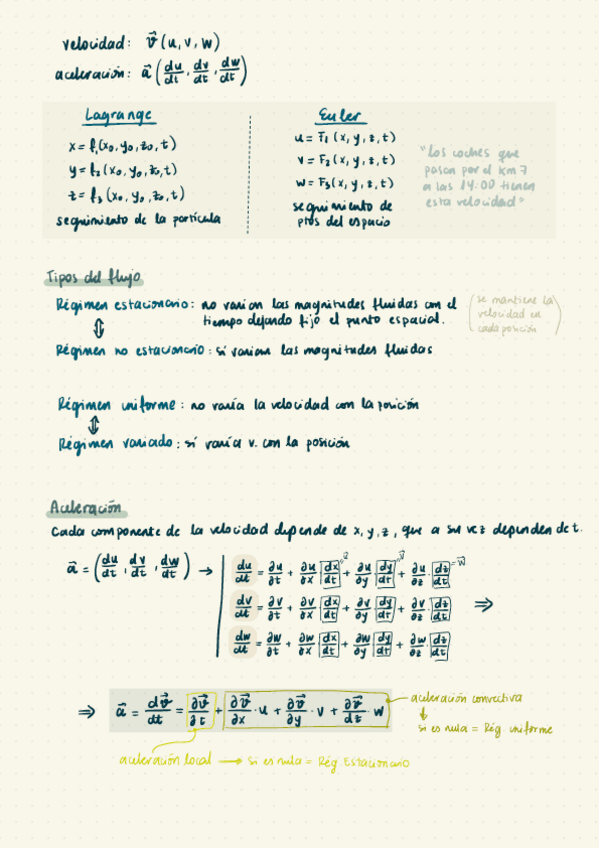 velocidad: v⃗ (u, v, w)
aceleración: a⃗ (du/dt, dv/dt, dw/dt)
Lagrange
x = f₁(x₀, y₀, z₀, t)
y = f₂(x₀, y₀, z₀, t)
z = f₃(x₀, y₀, z₀, t)
seguimiento de la partícula
Euler
u = F₁(x, y, z, t)
v = F₂(x, y, z, t)
w = F₃(x, y, z, t)
seguimiento de
ptos del espacio
"Los coches que
pasan por el km 7
a las 14:00 tienen
esta velocidad"
Tipos del flujo
Régimen estacionario: no varían las magnitudes fluidas con el
tiempo dejando fijo el punto espacial.
(se mantiene la
velocidad en
cada posición)
⇕
Régimen no estacionario: sí varían las magnitudes fluidas
Régimen uniforme: no varía la velocidad con la posición
⇕
Régimen variado: sí varía v. con la posición
Aceleración
Cada componente de la velocidad depende de x, y, z, que a su vez dependen de t.
a⃗ = (du/dt, dv/dt, dw/dt) →
du/dt = ∂u/∂t + ∂u/∂x · dx/dt + ∂u/∂y · dy/dt + ∂u/∂z · dz/dt = w⃗
dv/dt = ∂v/∂t + ∂v/∂x · dx/dt + ∂v/∂y · dy/dt + ∂v/∂z · dz/dt ⇒
dw/dt = ∂w/∂t + ∂w/∂x · dx/dt + ∂w/∂y · dy/dt + ∂w/∂z · dz/dt
⇒ a⃗ = dv⃗/dt = ∂v⃗/∂t + ∂v⃗/∂x · u + ∂v⃗/∂y · v + ∂v⃗/dz · w
aceleración convectiva
↓
si es nula = Rég uniforme
aceleración local → si es nula = Rég Estacionario